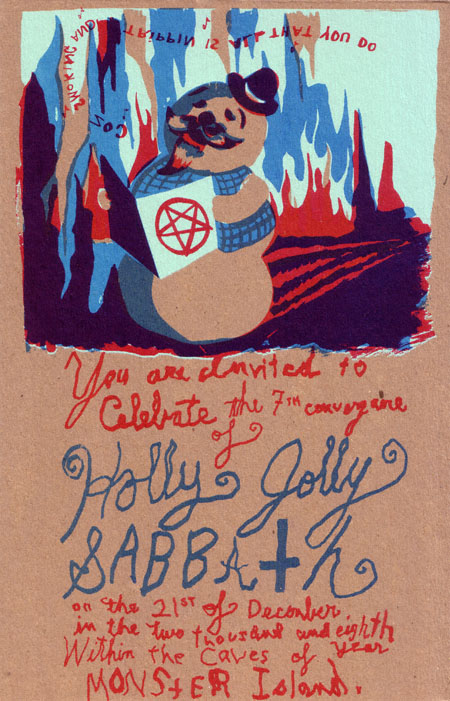 COZ
SMOKING AND
TRIPPIN IS ALL THAT YOU DO
You are Invited to
Celebrate the 7TH
of
Holly Jolly
SABBAth
on the 21ST of December
in the two thousand and eighth
year
Within the Caves of
MONSTER Island.